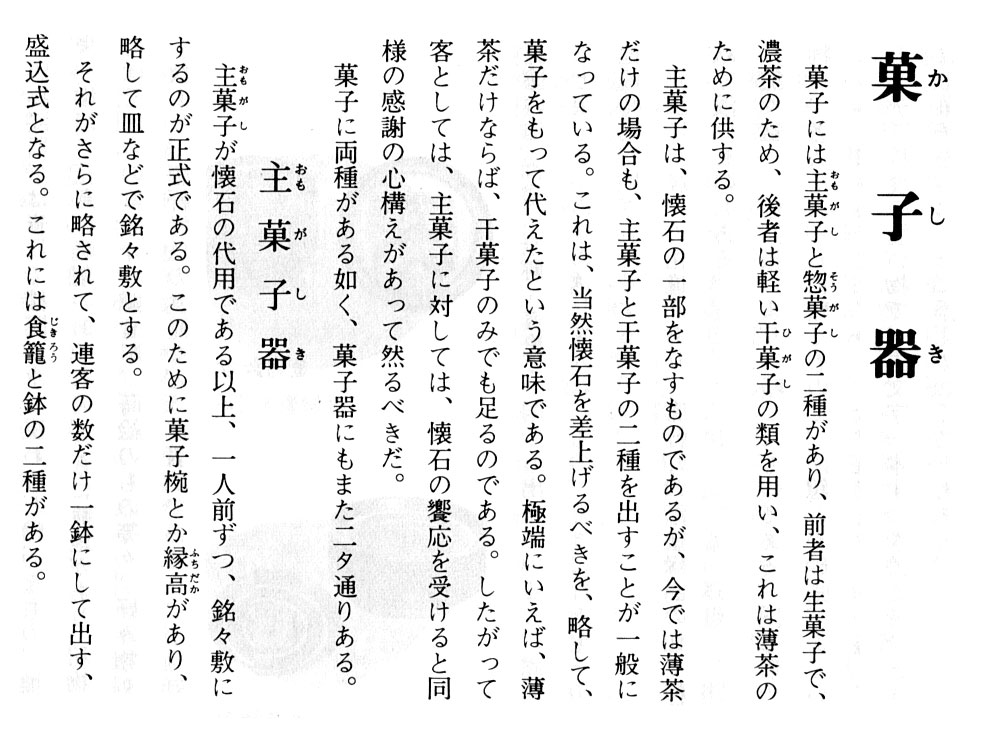 菓子器
菓子には主菓子と惣菓子の二種があり、前者は生菓子で、
濃茶のため、後者は軽い干菓子の類を用い、これは薄茶の
ために供する。
主菓子は、懐石の一部をなすものであるが、今では薄茶
だけの場合も、主菓子と干菓子の二種を出すことが一般に
なっている。これは、当然懐石を差上げるべきを、略して、
菓子をもって代えたという意味である。極端にいえば、薄
茶だけならば、干菓子のみでも足るのである。したがって
客としては、主菓子に対しては、懐石の饗応を受けると同
様の感謝の心構えがあって然るべきだ。
菓子に両種がある如く、菓子器にもまた二タ通りある。
主菓子器
主菓子が懐石の代用である以上、一人前ずつ、銘々敷に
するのが正式である。このために菓子椀とか縁高があり、
略して皿などで銘々敷とする。
それがさらに略されて、連客の数だけ一鉢にして出す、
盛込式となる。これには食籠と鉢の二種がある。